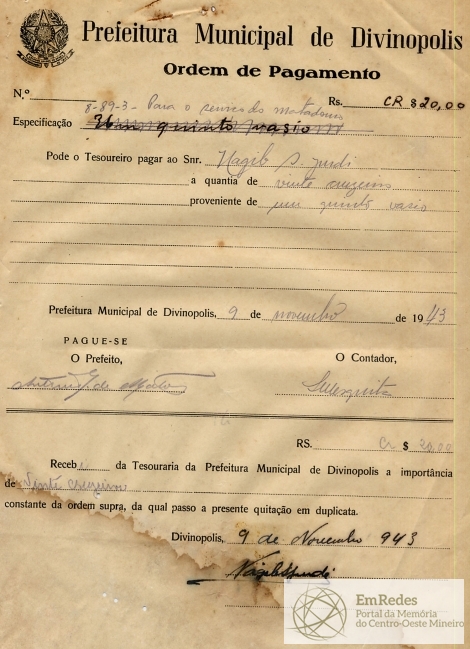 Prefeitura Municipal de Divinopolis
Ordem de Pagamento
N.º Rs. CR $20,00
8-89-3- Para o serviço do matadouro
Especificação Um quinto vasio
Pode o Tesoureiro pagar ao Snr. Nagib S. Jurdi
a quantia de vinte cruzeiros
proveniente de um quinto vasio
Prefeitura Municipal de Divinopolis, 9 de novembro de 1943
PAGUE-SE
O Prefeito, O Contador,
RS. Cr $ 20,00
Receb da Tesouraria da Prefeitura Municipal de Divinopolis a importância
de Vinte cruzeiros
constante da ordem supra, da qual passo a presente quitação em duplicata.
Divinopolis, 9 de Novembro 943
Nagib Jurdi
EmRedes
Portal da Memória
do Centro-Oeste Mineiro